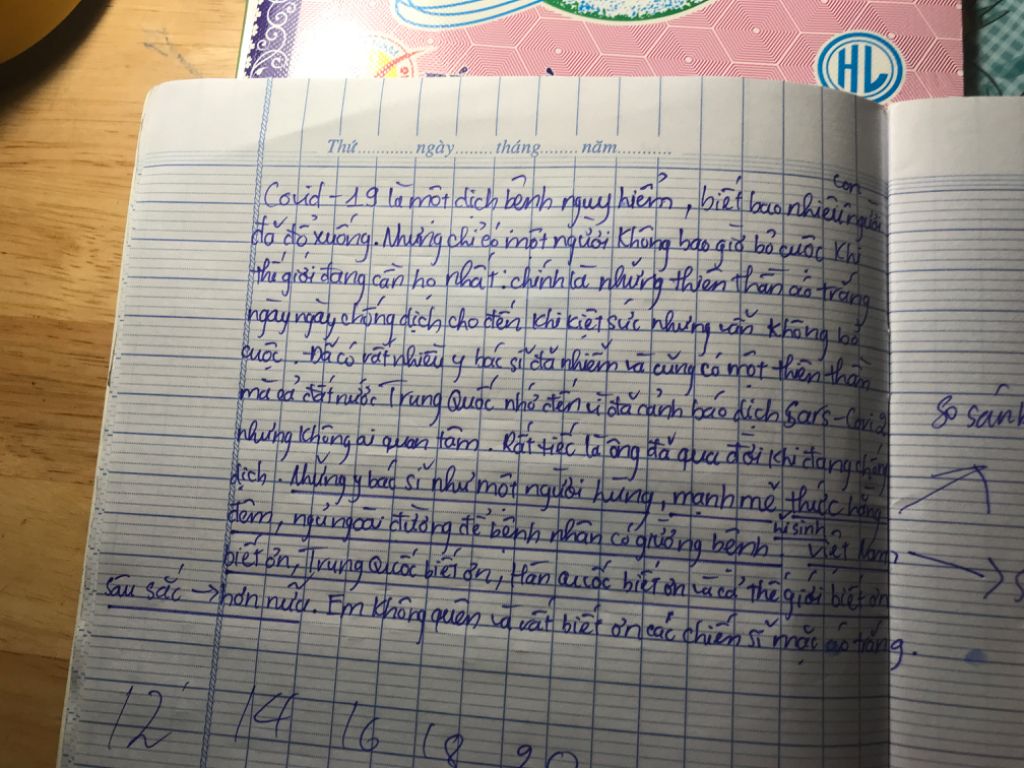 HL
Thứ............ ngày........ tháng......... năm............
con
Covid-19 là một dịch bệnh nguy hiểm, biết bao nhiêu người
đã đổ xuống. Nhưng chỉ có một người không bao giờ bỏ cuộc khi
thế giới đang cần họ nhất: chính là những thiên thần áo trắng
ngày ngày chống dịch cho đến khi kiệt sức nhưng vẫn không bỏ
cuộc. Đã có rất nhiều y bác sĩ đã nhiễm và cũng có một thiên thần
mà cả đất nước Trung Quốc nhớ đến vì đã cảnh báo dịch Sars-Covi 2
nhưng không ai quan tâm. Rất tiếc là ông đã qua đời khi đang chống
dịch. Những y bác sĩ như một người hùng, mạnh mẽ thức hằng
đêm, ngủ ngoài đường để bệnh nhân có giường bệnh hi sinh Việt Nam
biết ơn, Trung Quốc biết ơn, Hàn quốc biết ơn và cả thế giới biết ơn
sâu sắc → hơn nữa. Em không quên và rất biết ơn các chiến sĩ mặc áo trắng.
12 14 16 18 20
So sánh